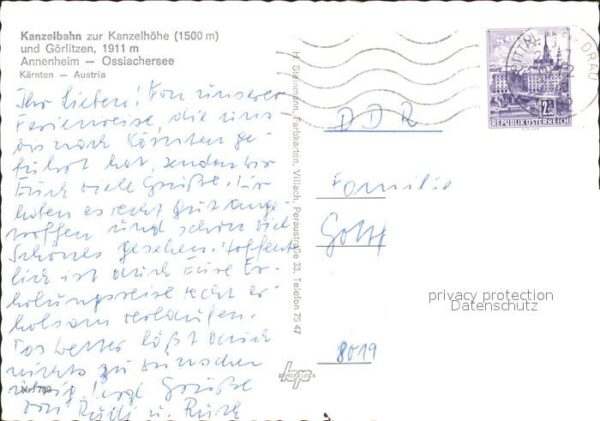 Kanzelbahn zur Kanzelhöhe (1500 m)
und Görlitzen, 1911 m
Annenheim — Ossiachersee
Kärnten — Austria
Ihr Lieben! Von unserer
Ferienreise, die uns
bis nach Kärnten ge-
führt hat, senden wir
Euch viele Grüße. Wir
haben es recht gut ange-
troffen und schon viel
Schönes gesehen. Hoffent-
lich ist auch Eure Er-
holungsreise recht er-
holsam verlaufen.
Das Wetter läßt auch
nichts zu wünschen
übrig. Hrzl. Grüße
von u. Ruth
Nr. 789
H. Stelzmann, Farbkarten, Villach, Peraustraße 33, Telefon 75 47
DDR
Familie
8019
REPUBLIK ÖSTERREICH
DRAU
privacy protection
Datenschutz